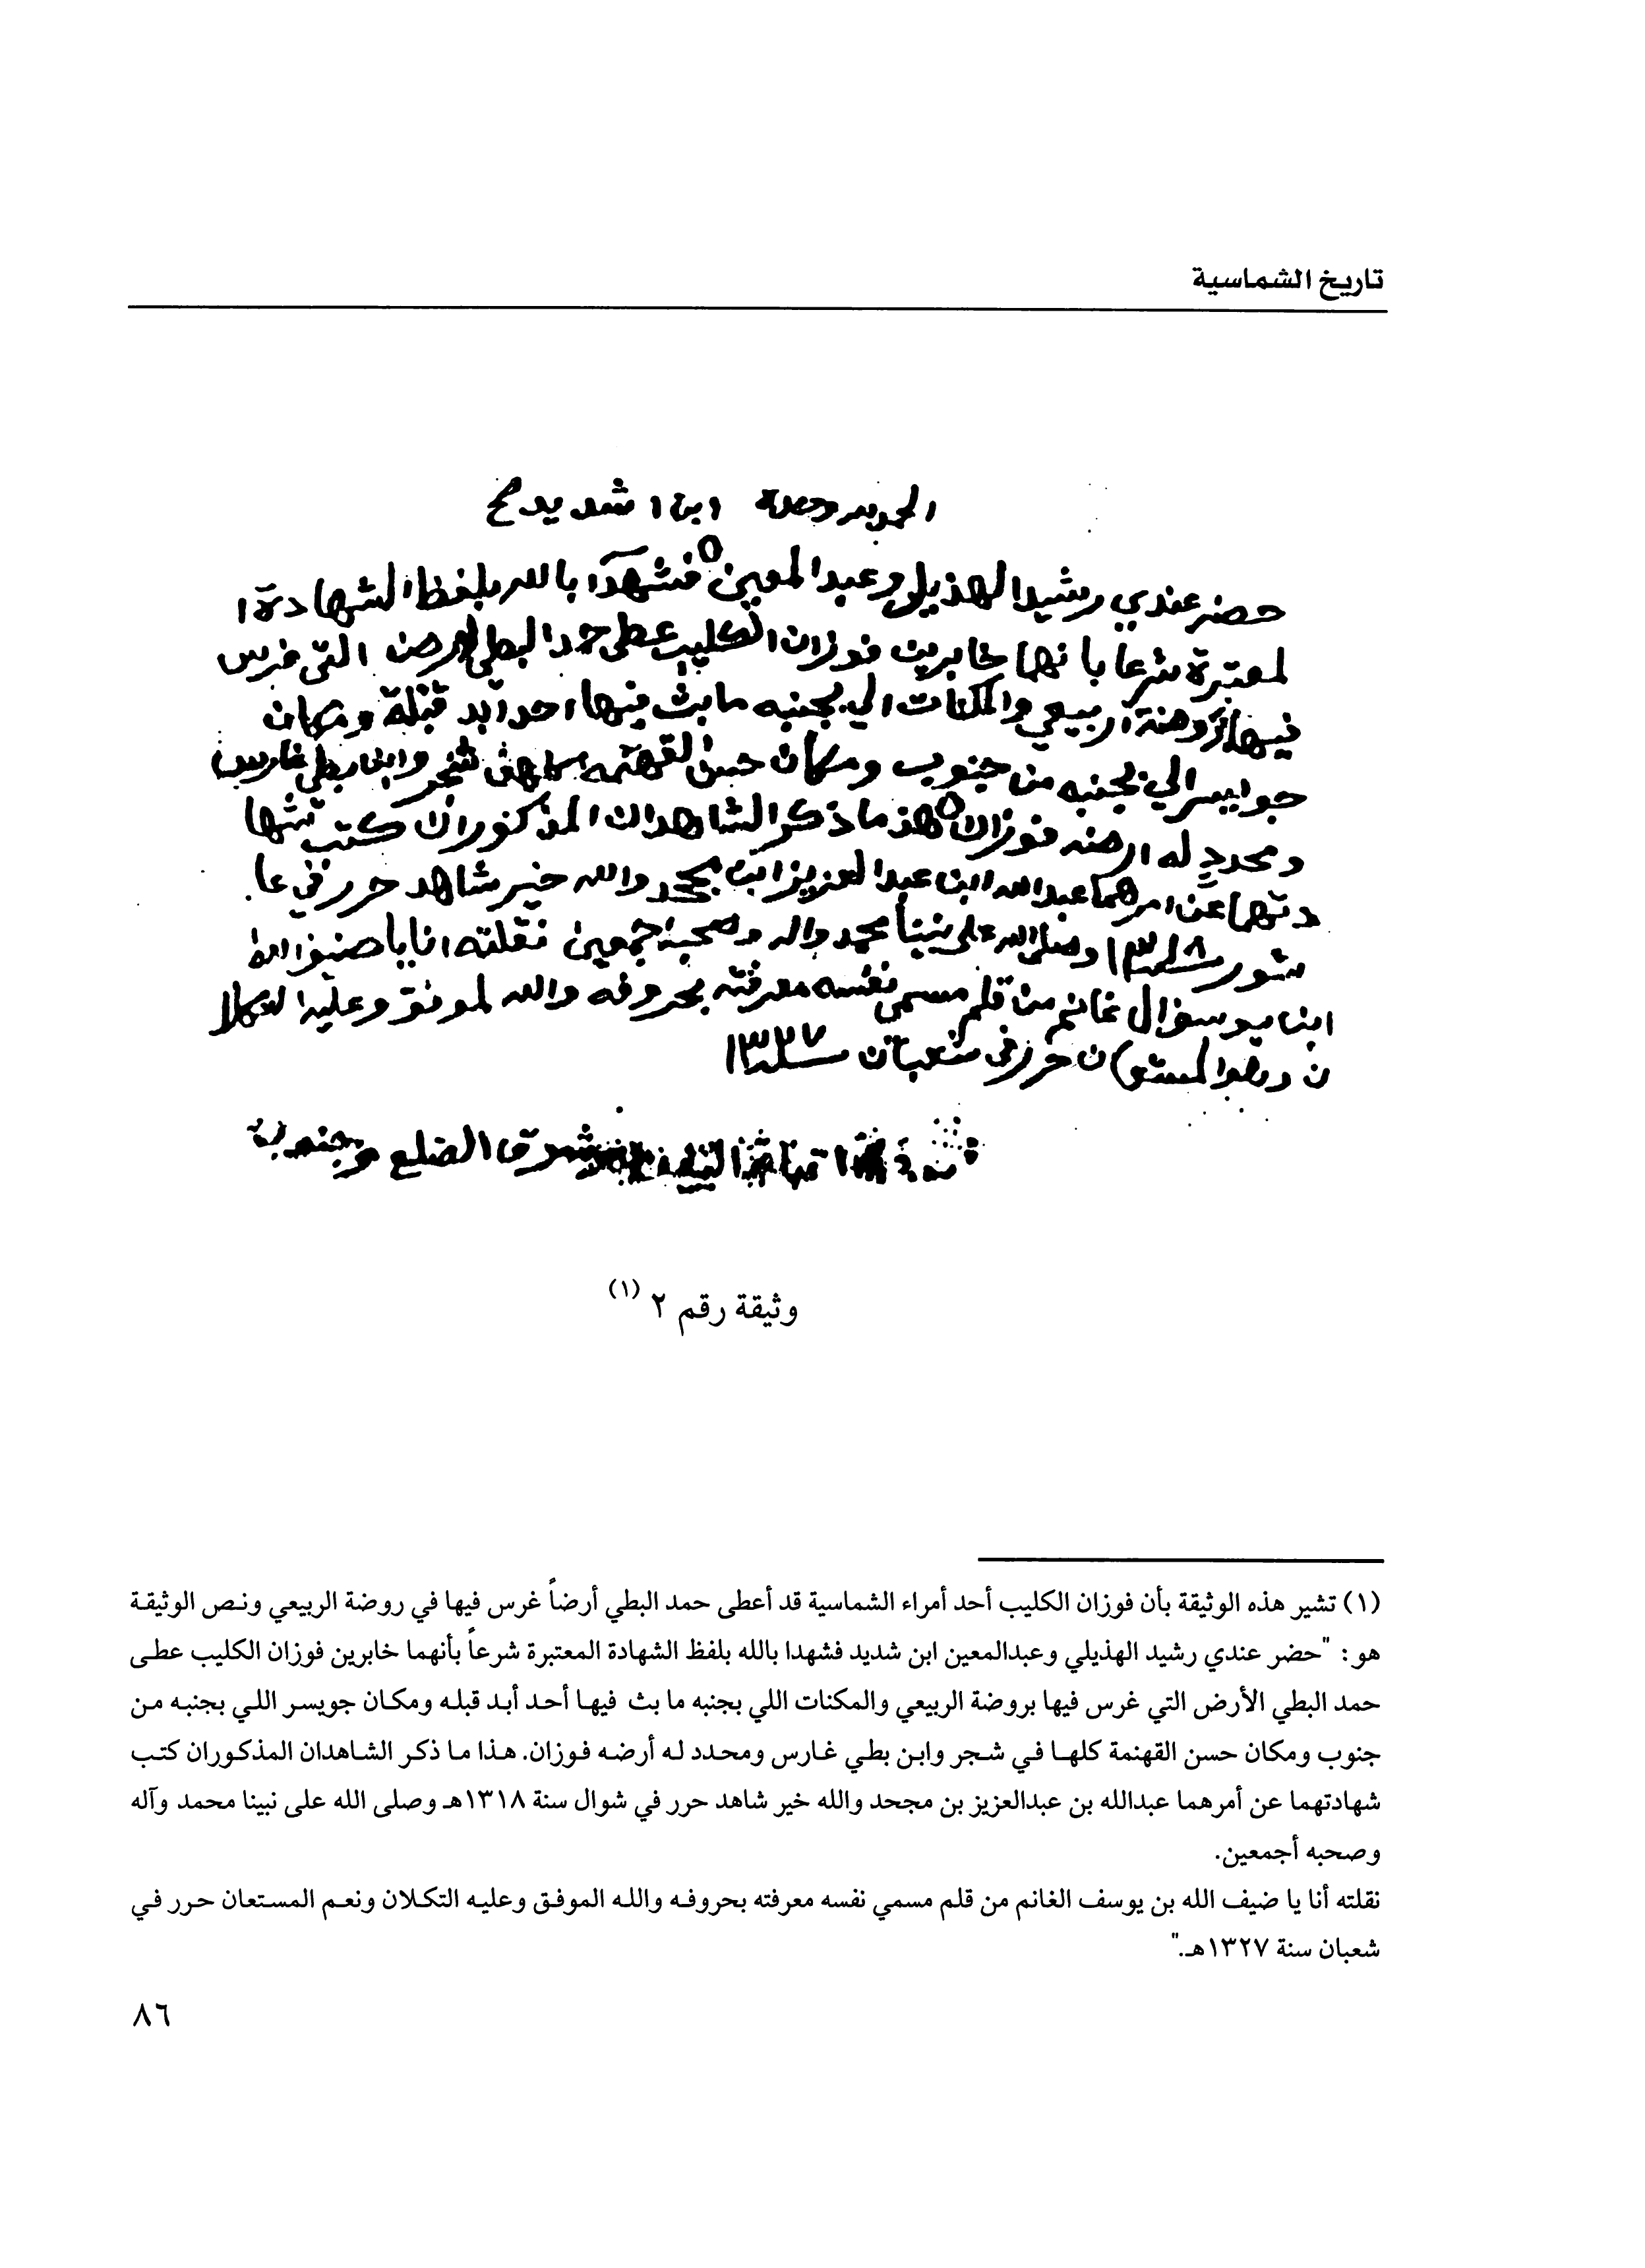 تاريخ الشماسية
الحمد لله وحده ابن اشديد صح
حضر عندي رشيد الهذيلي وعبدالمعين فشهدا بالله بلفظ الشهادة ا
لمعتبرة شرعا بانهما خابرين فوزان الكليب عطى حمد البطي الارض التي غرس
فيها بروضة اربيعي والمكنات الي بجنبه ما بث فيها احد ابد قبله ومكان
جوايسر الي بجنبه من جنوب ومكان حسن القهنمه كلهن شجر وابن بطي غارس
ومحدد له ارضه فوزان هذ ما ذكر الشاهدان المذكوران كتب شها
دتهما عن امرهما عبدالله ابن عبدالعزيز ابن مجحد والله خير شاهد حرر في
سنة ١٣١٨ وصلى الله على نبينا محمد واله وصحبه اجمعين نقلته انا يا ضيف الله
ابن يوسف ال غانم من قلم مسمي نفسه معرفته بحروفه والله لموفق وعليه التكلا
ن ونعم المستعان حرر في شعبان سنة ١٣٢٧
شرق الضلع وجنوبه
وثيقة رقم ٢ (١)
(١) تشير هذه الوثيقة بأن فوزان الكليب أحد أمراء الشماسية قد أعطى حمد البطي أرضاً غرس فيها في روضة الربيعي ونص الوثيقة
هو: "حضر عندي رشيد الهذيلي وعبدالمعين ابن شديد فشهدا بالله بلفظ الشهادة المعتبرة شرعاً بأنهما خابرين فوزان الكليب عطى
حمد البطي الأرض التي غرس فيها بروضة الربيعي والمكنات اللي بجنبه ما بث فيها أحد أبد قبله ومكان جويسر اللي بجنبه من
جنوب ومكان حسن القهنمة كلها في شجر وابن بطي غارس ومحدد له أرضه فوزان. هذا ما ذكر الشاهدان المذكوران كتب
شهادتهما عن أمرهما عبدالله بن عبدالعزيز بن مجحد والله خير شاهد حرر في شوال سنة ١٣١٨هـ وصلى الله على نبينا محمد وآله
وصحبه أجمعين.
نقلته أنا يا ضيف الله بن يوسف الغانم من قلم مسمي نفسه معرفته بحروفه والله الموفق وعليه التكلان ونعم المستعان حرر في
شعبان سنة ١٣٢٧هـ."
٨٦